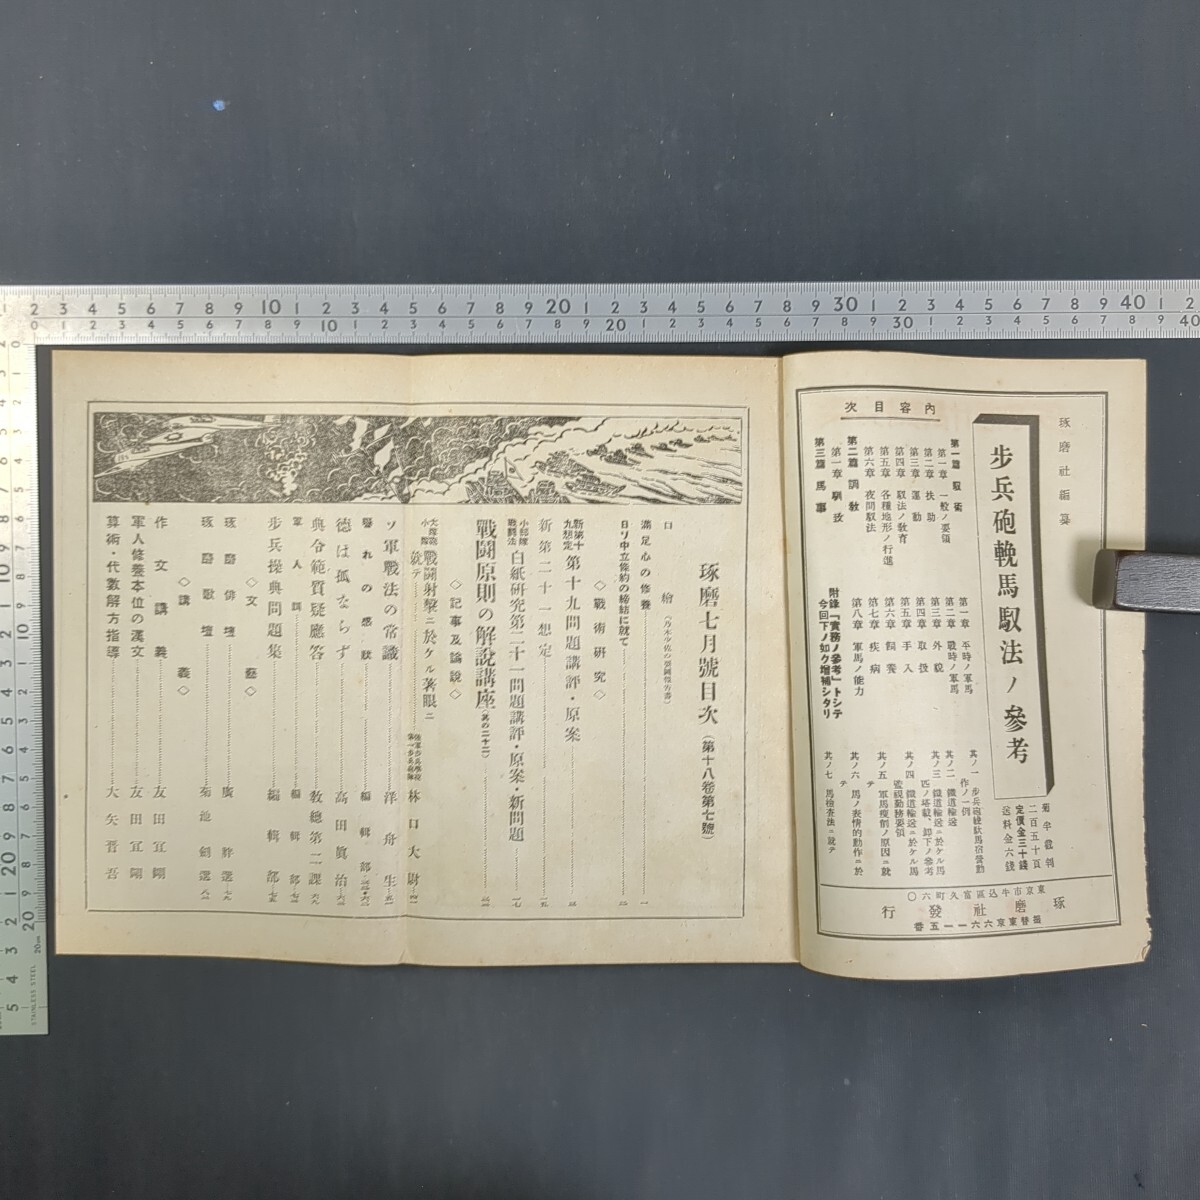 琢磨社編纂
步兵砲輓馬馭法ノ參考
菊半截判
二百五十頁
定價金三十錢
送料金六錢
內容目次
第一篇 馭術
第一章 一般ノ要領
第二章 扶助
第三章 運動
第四章 馭法ノ敎育
第五章 各種地形ノ行進
第六章 夜間馭法
第二篇 調敎
第一章 馴致
第三篇 馬事
第一章 平時ノ軍馬
第二章 戰時ノ軍馬
第三章 外貌
第四章 取扱
第五章 手入
第六章 飼養
第七章 疾病
第八章 軍馬ノ能力
附錄「實務ノ參考」トシテ
今回下ノ如ク增補シタリ
其ノ一 步兵砲輓馱馬宿營動
作ノ一例
其ノ二 鐵道輸送
其ノ三 鐵道輸送ニ於ケル馬
匹ノ塔載、卸下ノ參考
其ノ四 鐵道輸送ニ於ケル馬
監視勤務要領
其ノ五 軍馬瘦削ノ原因ニ就
テ
其ノ六 馬ノ表情的動作ニ於
テ
其ノ七 馬檢査法ニ就テ
東京市牛込區富久町六〇
琢磨社發行
振替東京六六一一五番
琢磨七月號目次(第十八卷第七號)
口繪
滿足心の修養 一
日ソ中立條約の締結に就て
◇戰術硏究◇
新第十九想定 第十九問題講評・原案
新第二十一想定
小部隊戰鬪法 白紙硏究第二十一問題講評・原案・新問題
戰鬪原則の解說講座(其の二十二)
◇記事及論說◇
大隊砲小隊 戰鬪射擊ニ於ケル著眼ニ就テ 林口大尉
ソ軍戰法の常識 洋舟生
譽れの感狀 編輯部
德は孤ならず 高田眞治
典令範質疑應答 敎總第二課
軍人訓 編輯部
步兵操典問題集 編輯部
◇文藝◇
琢磨俳壇
琢磨歌壇 菊池劍選
◇講義◇
作文講義 友田宜剛
軍人修養本位の漢文 友田宜剛
算術・代數解方指導 大矢晋吾
STAINLESS STEEL